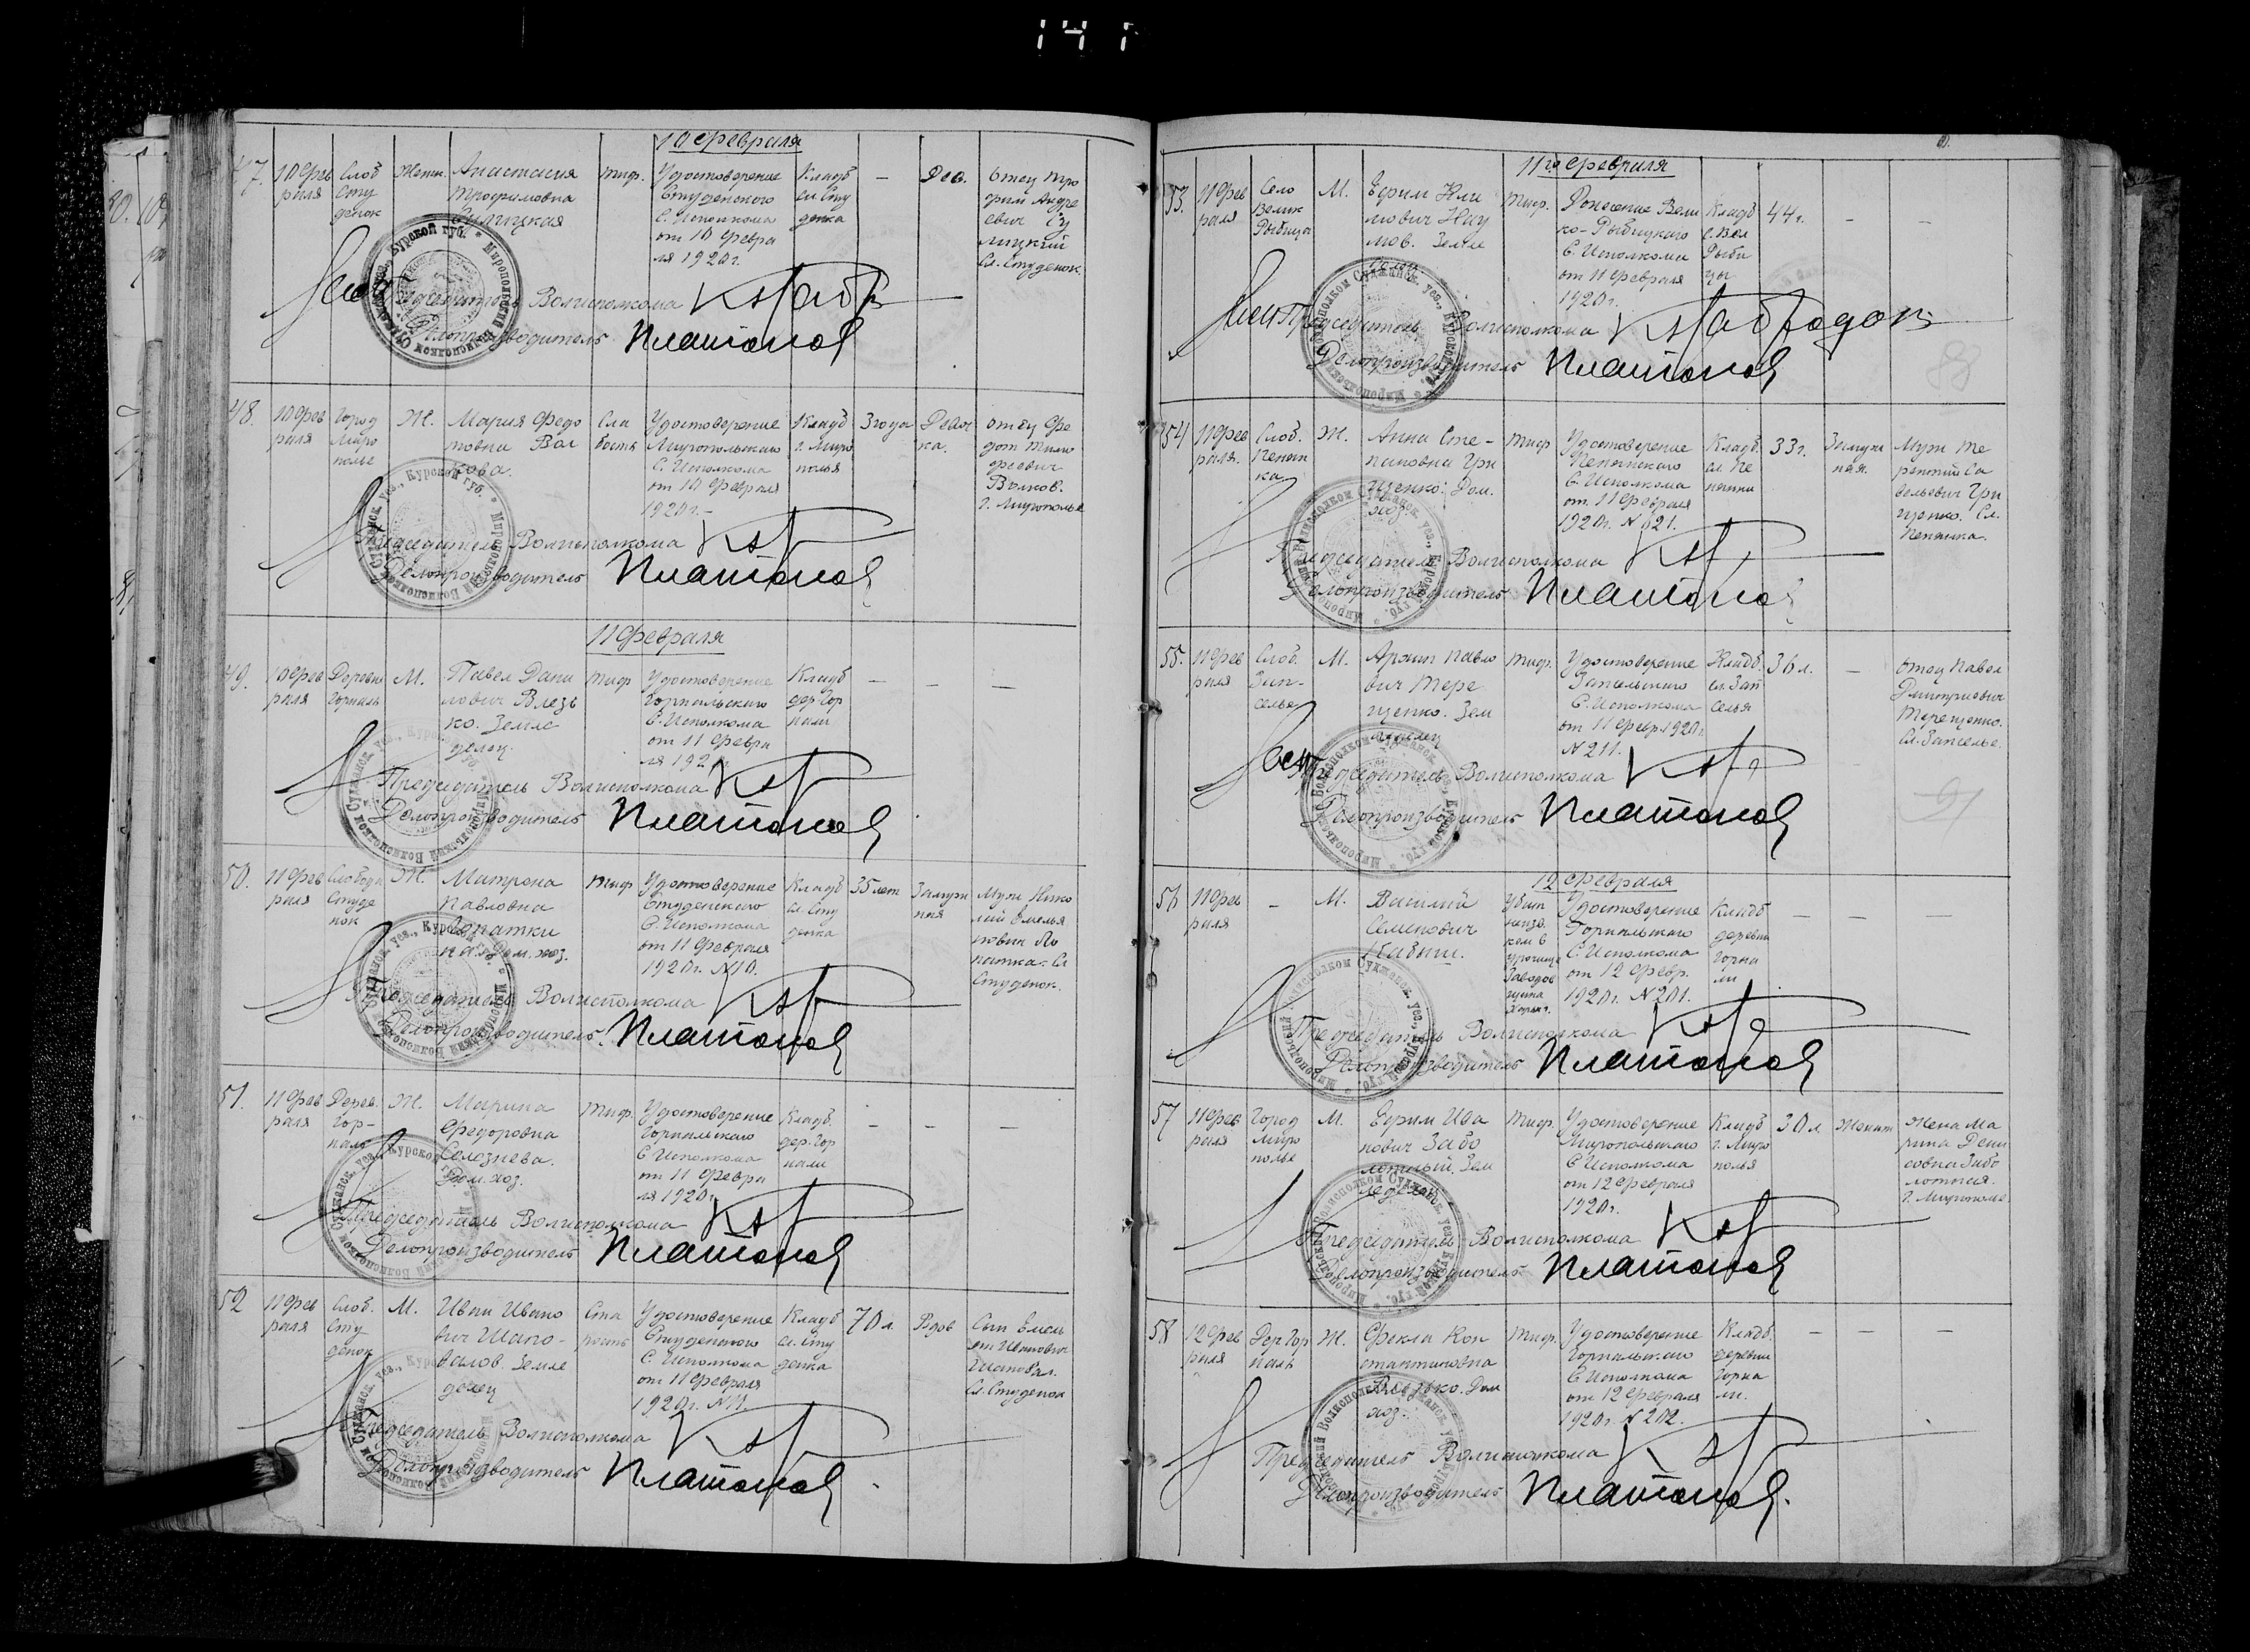 141
10 февраля
47.
10 фев
раля
Слоб
Сту
денок
Женск.
Анастасия
Трофимовна
тиф.
Удостоверение
Студенского
С. Исполкома
от 10 Февра
ля 1920 г.
Кладб
сл. Сту
денка
—
Дев.
Отец Тро
фим Андре
евич
Сл. Студенок.
Волисполкома
Делопроизводитель Платонов
48.
10 фев
раля
Город
Миро
полье
Ж.
Мария Федо
товна Вол
кова.
Сла
бость
Удостоверение
Миропольского
С. Исполкома
от 10 Февраля
1920 г. –
Кладб
г. Миро
полья
3 года
Девоч
ка.
отец Фе
дот Тимо
феевич
Волков.
г. Мирополье
Председатель Волисполкома
Делопроизводитель Платонов
11 Февраля
49.
10 фев
раля
Деревня
Горналь
М.
Павел Дани
лович Влезь
ко. Земле
делец.
тиф
Удостоверение
Горнальского
С. Исполкома
от 11 Февра
ля 192
Кладб
дер. Гор
нали
—
—
—
Председатель Волисполкома
Делопроизводитель Платонов
50.
11 фев
раля
Слобода
Студе
нок
Ж.
Матрена
Павловна
Лопатки
на. Дом. хоз.
тиф
Удостоверение
Студенского
С. Исполкома
от 11 Февраля
1920 г. N 10.
Кладб
сл. Сту
денка
35 лет
Замуж
няя
Муж Нико
лай Емелья
нович Ло
паткин. Сл
Студенок.
Председатель Волисполкома
Делопроизводитель. Платонов
51.
11 фев
раля
Дерев.
Гор-
наль
Ж.
Марина
Федоровна
Селезнева.
Дом. хоз.
тиф.
Удостоверение
Горнальского
С Исполкома
от 11 Февра
ля 1920 г.
Кладб.
дер. Гор
нали
—
—
—
Председатель Волисполкома
Делопроизводитель Платонов
52
11 фев
раля
Слоб.
Сту
денок
М.
Иван Ивано
вич Шапо-
валов. Земле
делец
Ста
рость
Удостоверение
Студенского
С. Исполкома
от 11 Февраля
1920 г. N 11.
Кладб
сл. Сту
денка
70 л.
Вдов
Сын Емель
ян Иванович
Шаповал.
Сл. Студенок
Председатель Волисполкома
Делопроизводитель Платонов
11го Февраля
53.
11 фев
раля
Село
Велик
Рыбица
М.
Ефим Кли
мович Нау
мов. Земле
делец
Тиф.
Донесение Вели
ко-Рыбицкого
С. Исполкома
от 11 Февраля
1920 г.
Кладб
с. Вел
Рыби
цы
44 г.
—
—
Председатель Волисполкома
Делопроизводитель Платонов
88
54
11 фев
раля.
Слоб.
Пенян
ка
Ж.
Анна Сте-
пановна Гри
щенко. Дом.
хоз.
Тиф
Удостоверение
Пенянского
С. Исполкома
от 11 Февраля
1920 г. N 621.
Кладб.
сл. Пе
нянки
33 г.
Замуж
няя.
Муж Те
рентий Са
вельевич Гри
щенко. Сл.
Пенянка.
Председатель Волисполкома
Делопроизводитель Платонов
55.
11 фев
раля
Слоб.
Зап-
селье
М.
Архип Павло
вич Тере
щенко. Зем
леделец
Тиф.
Удостоверение
Запсельского
С. Исполкома
от 11 Февр. 1920 г.
N 211.
Кладб.
сл. Зап
селья
36 л.
—
Отец Павел
Дмитриевич
Терещенко.
Сл. Запселье.
Председатель Волисполкома
Делопроизводитель Платонов
12 Февраля
56
11 фев
раля
–
М.
Василий
Семенович
Убит
неизв.
кем в
урочище
Удостоверение
Горнальского
С. Исполкома
от 12 Февр.
1920 г. N 201.
Кладб
деревни
Горна
ли
—
—
—
Председатель Волисполкома
Делопроизводитель Платонов
57
11 фев
раля
Город
Миро
полье
М.
Ефим Ива
нович Забо
лотный. Зем
леделец
Тиф.
Удостоверение
Миропольского
С Исполкома
от 12 Февраля
1920 г.
Кладб
г. Миро
полья
30 л
Женат
Жена Ма
рина Дени
совна Забо
лотная.
г. Мирополье
Председатель Волисполкома
Делопроизводитель Платонов
58
12 фев
раля
Дер Гор
наль
Ж.
Фекла Кон
стантиновна
Влезько. Дом
хоз.
Тиф.
Удостоверение
Горнальского
С Исполкома
от 12 Февраля
1920 г. N 202.
Кладб.
деревни
Горна
ли.
—
—
—
Председатель Волисполкома
Делопроизводитель Платонов.